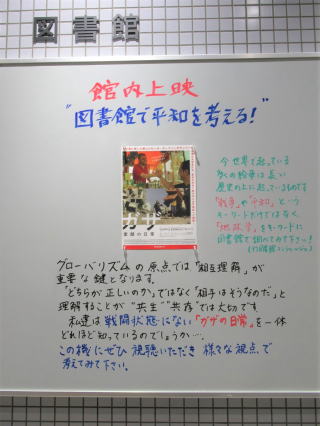 図書館
館内上映
"図書館で平和を考える!"
ガザ
素顔の日常
今世界で起っている
多くの紛争は長い
歴史の上に起っているものです
"戦争"や"平和"という
キーワードだけではなく、
「地政学」をキーワードに
図書館で調べてみて下さい!
グローバリズムの原点では「相互理解」が
重要な鍵となります。
"どちらが正しいのか"ではなく「相手はそうなのだ」と
理解することが"共生""共存"では大切です
私達は戦闘状態にない「ガザの日常」を一体
どれほど知っているのでしょうか…。
この機にぜひ視聴いただき様々な視点で
考えてみて下さい。